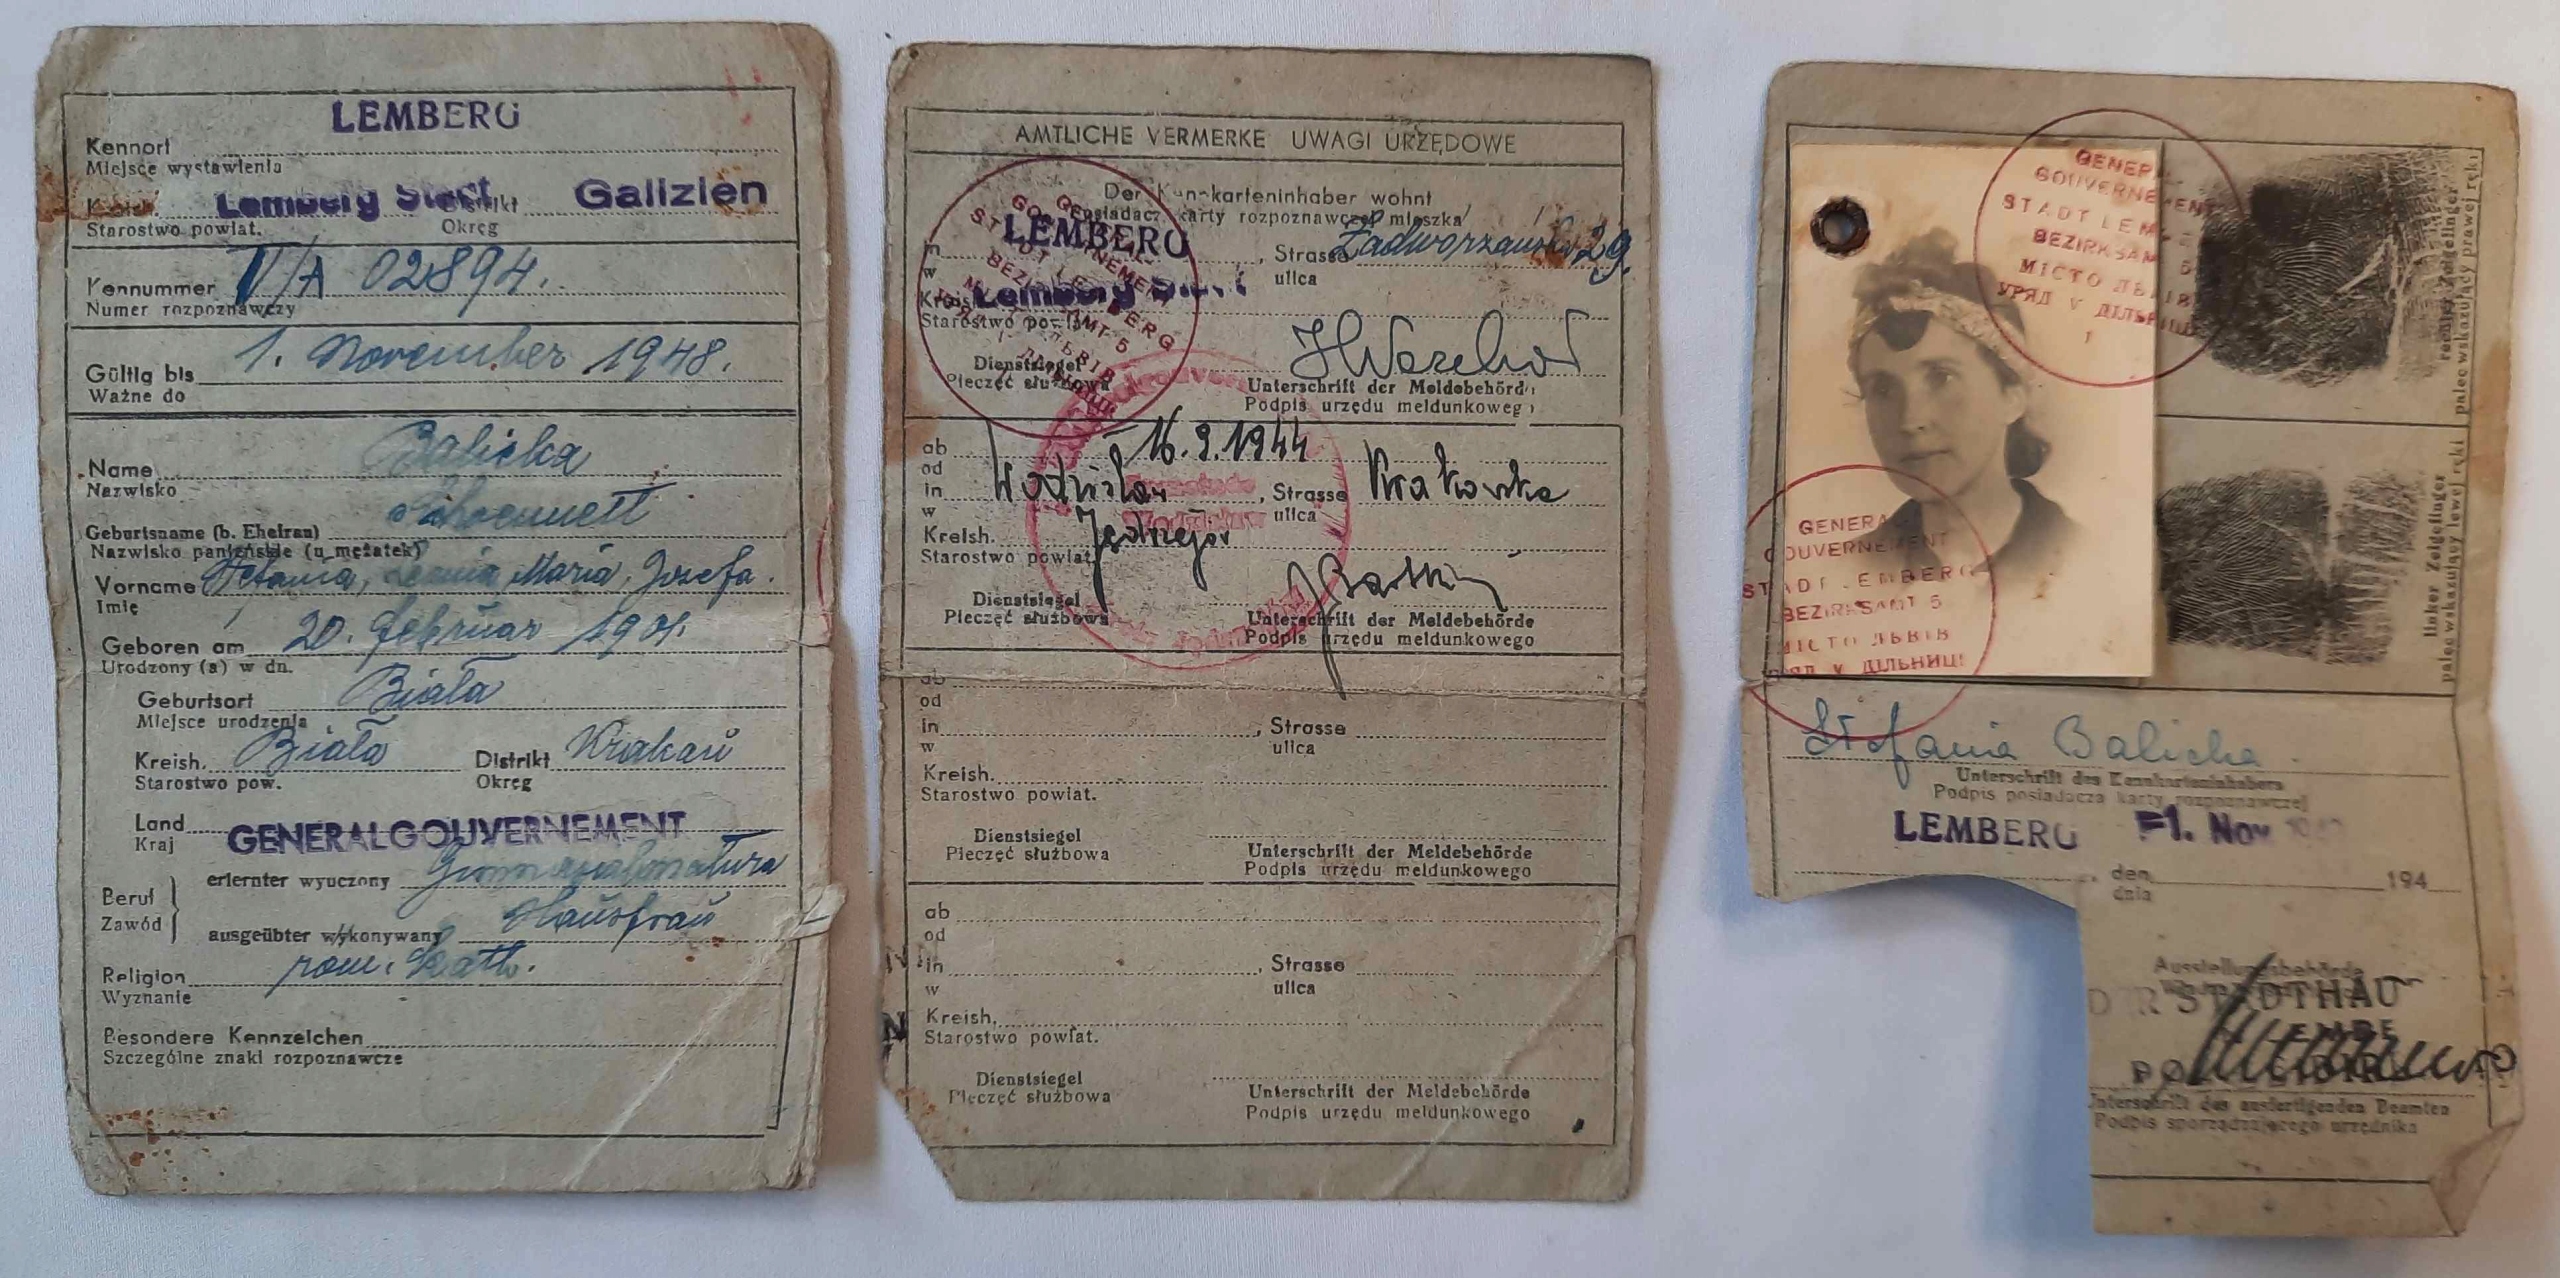 LEMBERG
Kennort
Miejsce wystawienia
Lemberg Stadt Distrikt Galizien
Starostwo powiat. Okręg
Kennummer V/A 02894.
Numer rozpoznawczy
Gültig bis 1. November 1948.
Ważne do
Name Balicka
Nazwisko
Geburtsname (b. Ehefrau) Schoennett
Nazwisko panieńskie (u mężatek)
Vorname Stefania, Maria, Josefa.
Imię
Geboren am 20. Februar 1901.
Urodzony (a) w dn.
Geburtsort Biała
Miejsce urodzenia
Kreish. Biała Distrikt Krakau
Starostwo pow. Okręg
Land GENERALGOUVERNEMENT
Kraj
Beruf erlernter wyuczony Gymnasialmatura
Zawód ausgeübter wykonywany Hausfrau
Religion röm. kath.
Wyznanie
Besondere Kennzeichen
Szczególne znaki rozpoznawcze
AMTLICHE VERMERKE UWAGI URZĘDOWE
Der Kennkarteninhaber wohnt
Posiadacz karty rozpoznawczej mieszka
in LEMBERG, Strasse 29.
w ulica
Kreish. Lemberg Stadt
Starostwo powiat.
GENERAL-
GOUVERNEMENT
STADT LEMBERG
BEZIRKSAMT 5
Dienstsiegel
Pieczęć służbowa Unterschrift der Meldebehörde
Podpis urzędu meldunkowego
ab 16.9.1944
od
in Wodzisław, Strasse Krakowska
w ulica
Kreish. Jędrzejów
Starostwo powiat.
Dienstsiegel
Pieczęć służbowa Unterschrift der Meldebehörde
Podpis urzędu meldunkowego
ab
od
in , Strasse
w ulica
Kreish.
Starostwo powiat.
Dienstsiegel Unterschrift der Meldebehörde
Pieczęć służbowa Podpis urzędu meldunkowego
ab
od
in , Strasse
w ulica
Kreish.
Starostwo powiat.
Dienstsiegel Unterschrift der Meldebehörde
Pieczęć służbowa Podpis urzędu meldunkowego
GENERAL
GOUVERNEMENT
STADT LEMBERG
BEZIRKSAMT 5
МІСТО ЛЬВІВ
УРЯД V ДІЛЬНИЦІ
1
rechter Zeigefinger
palec wskazujący prawej ręki
GENERAL
GOUVERNEMENT
STADT LEMBERG
BEZIRKSAMT 5
МІСТО ЛЬВІВ
УРЯД V ДІЛЬНИЦІ
linker Zeigefinger
palec wskazujący lewej ręki
Stefania Balicka.
Unterschrift des Kennkarteninhabers
Podpis posiadacza karty rozpoznawczej
LEMBERG -1. Nov
, den 194
dnia
Ausstellungsbehörde
DER STADTHAU
Unterschrift des ausfertigenden Beamten
Podpis sporządzającego urzędnika